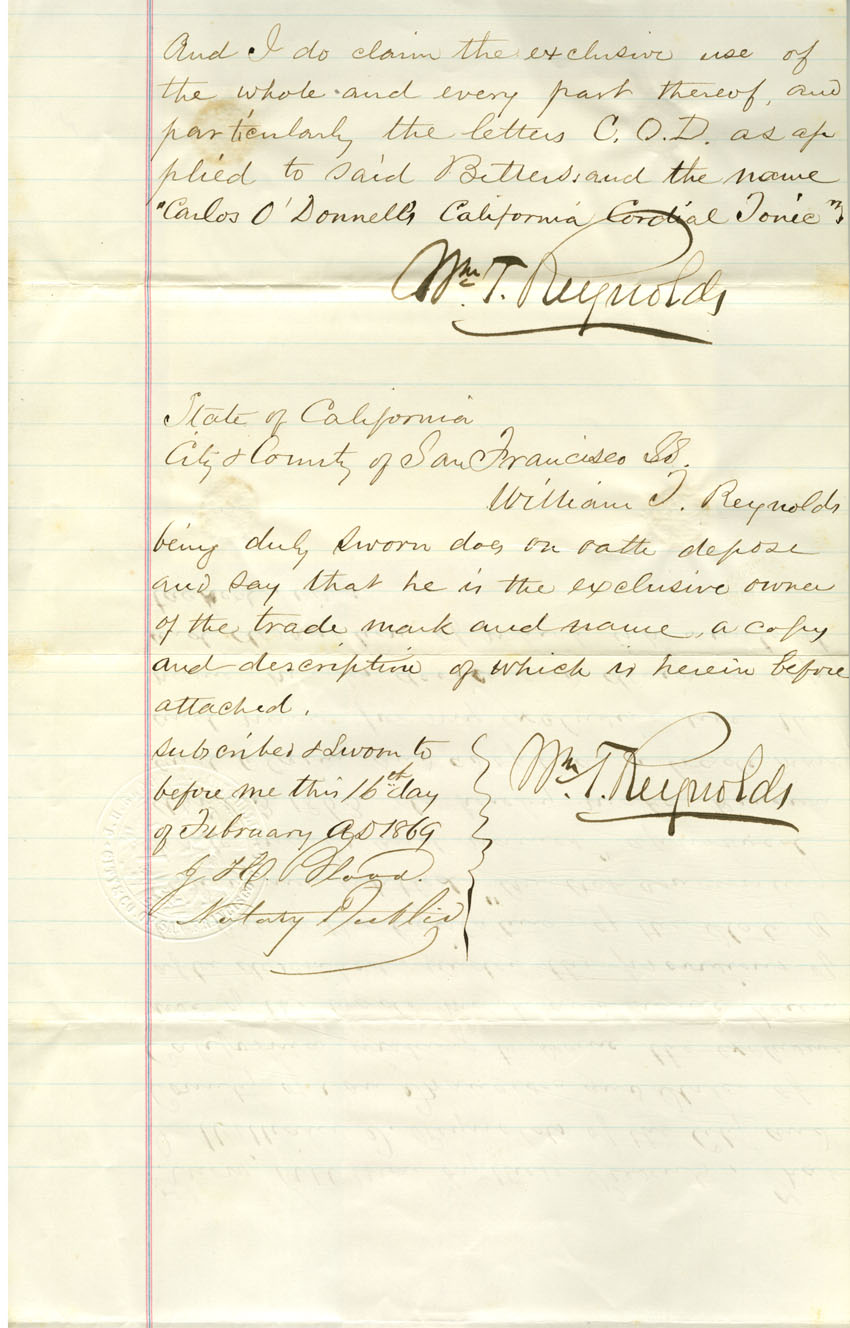 And I do claim the exclusive use of
the whole and every part thereof, and
particularly the letters C. O. D. as ap
plied to said Bitters: and the name
"Carlos O'Donnell's California Cordial Tonic"
Wm. T. Reynolds
State of California
City & County of San Francisco SS.
William T. Reynolds
being duly sworn does on oath depose
and say that he is the exclusive owner
of the trade mark and name, a copy
and description of which is herein before
attached.
subscribed & Sworn to
before me this 16th day
of February AD 1869
J. H. Blood.
Notary Public
Wm. T. Reynolds